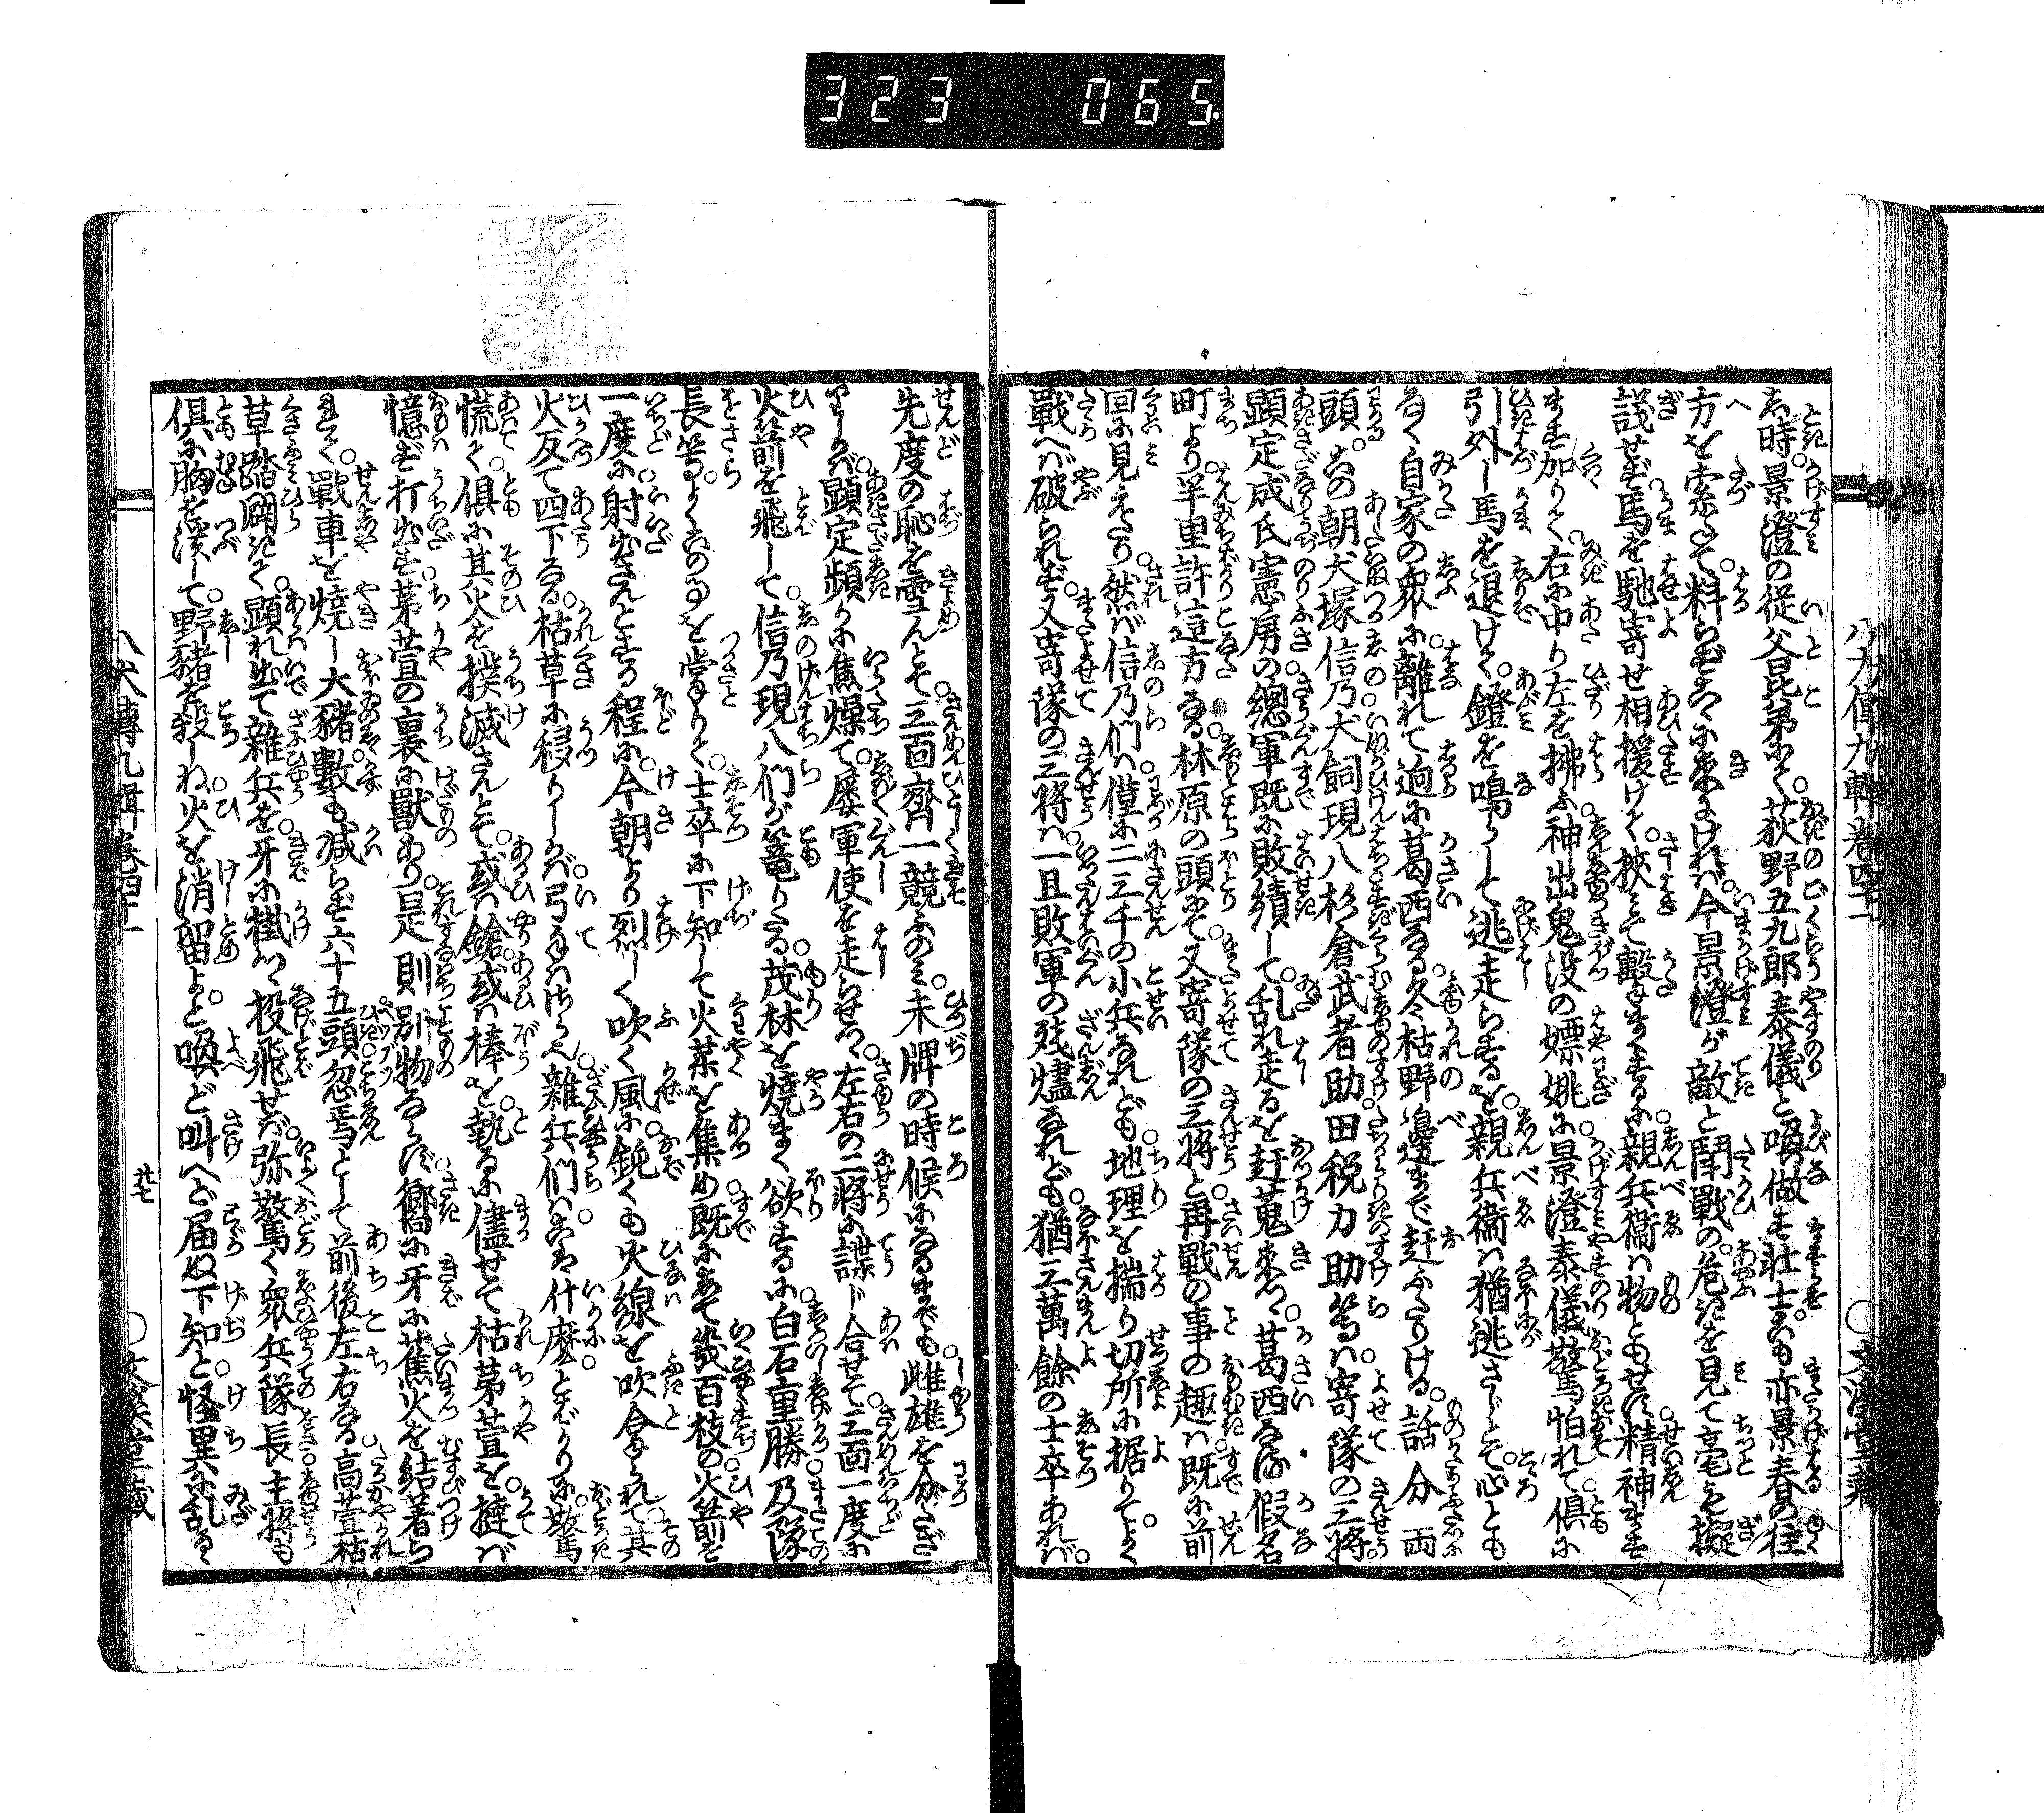 323 065
し時。景澄の従父昆弟にて。荻野五九郎泰儀と喚做す壮士。是も亦景春の往
方を索ねて。料らずこゝに来にければ。今景澄が敵と闘戦の。危きを見て毫も擬
議せず。馬を馳寄せ相援けて。挾みて撃まくするに。親兵衛は物ともせず。精神ます
ます加りて。右に中り左を拂ふ。神出鬼没の嫖姚に。景澄泰儀驚怕れて。倶に
引外し馬を退けて。鐙を鳴らして逃走らするを。親兵衛は猶逃さじとて。心とも
なく自家の衆に。離れて逈に葛西なる。冬枯野邊まで赶ふたりける。話分両
頭。この朝犬塚信乃犬飼現八杉倉武者助田税力助等は。寄隊の三将
顕定成氏憲房の總軍既に敗績して。乱れ走るを赶蒐来つ。葛西なる假名
町より半里許這方なる。林原の頭にて。又寄隊の三将と。再戦の事の趣は既に前
回に見えたり。然ば信乃们は僅に二三千の小兵なれども。地理を揣り切所に据りて。よく
戰へば破られず。又寄隊の三将は。一旦敗軍の残燼なれども。猶三萬餘の士卒あれば。
先度の恥を雪んとて。三面齊一競ふのみ。未牌の時候になるまでも。雌雄を分たざ
りしかば。顕定頻りに焦燥て。屡軍使を走らせつ。左右の二将に諜じ合せて。三面一度に
火箭を飛して。信乃現八们が篭りたる。茂林を焼まく欲するに。白石重勝及隊
長等。よくこの事を掌りて。士卒に下知して火薬を集め。既にあて幾百枝の火箭を
一度に射出さんとする程に。今朝より烈しく吹く風に。鈍くも火線を吹合られて。其
火反て四下なる。枯草に移りしかば。弓手はさら也。雑兵們は。こは什麽とばかりに。驚
慌て。倶に其火を撲滅さんとて。或は鎗或は棒を。執るに儘せて枯茅萱を。撻ば
憶ず打出す。茅萱の裏に獣あり。是則別物ならず。嚮に牙に蕉火を結着ら
れて。戰車を焼し大猪。數も減らず六十五頭。忽焉として前後左右なる。高萱枯
草踏闢きて。顕れ出て雑兵を。牙に掛けつゝ投飛せば。弥驚く衆兵隊長主将も
倶に胸を潰して。野猪を殺しね火を消留よ。と喚ど叫べど届ぬ下知と。怪異に乱るゝ
八犬傳九輯巻四十一
廿七
○文溪堂藏